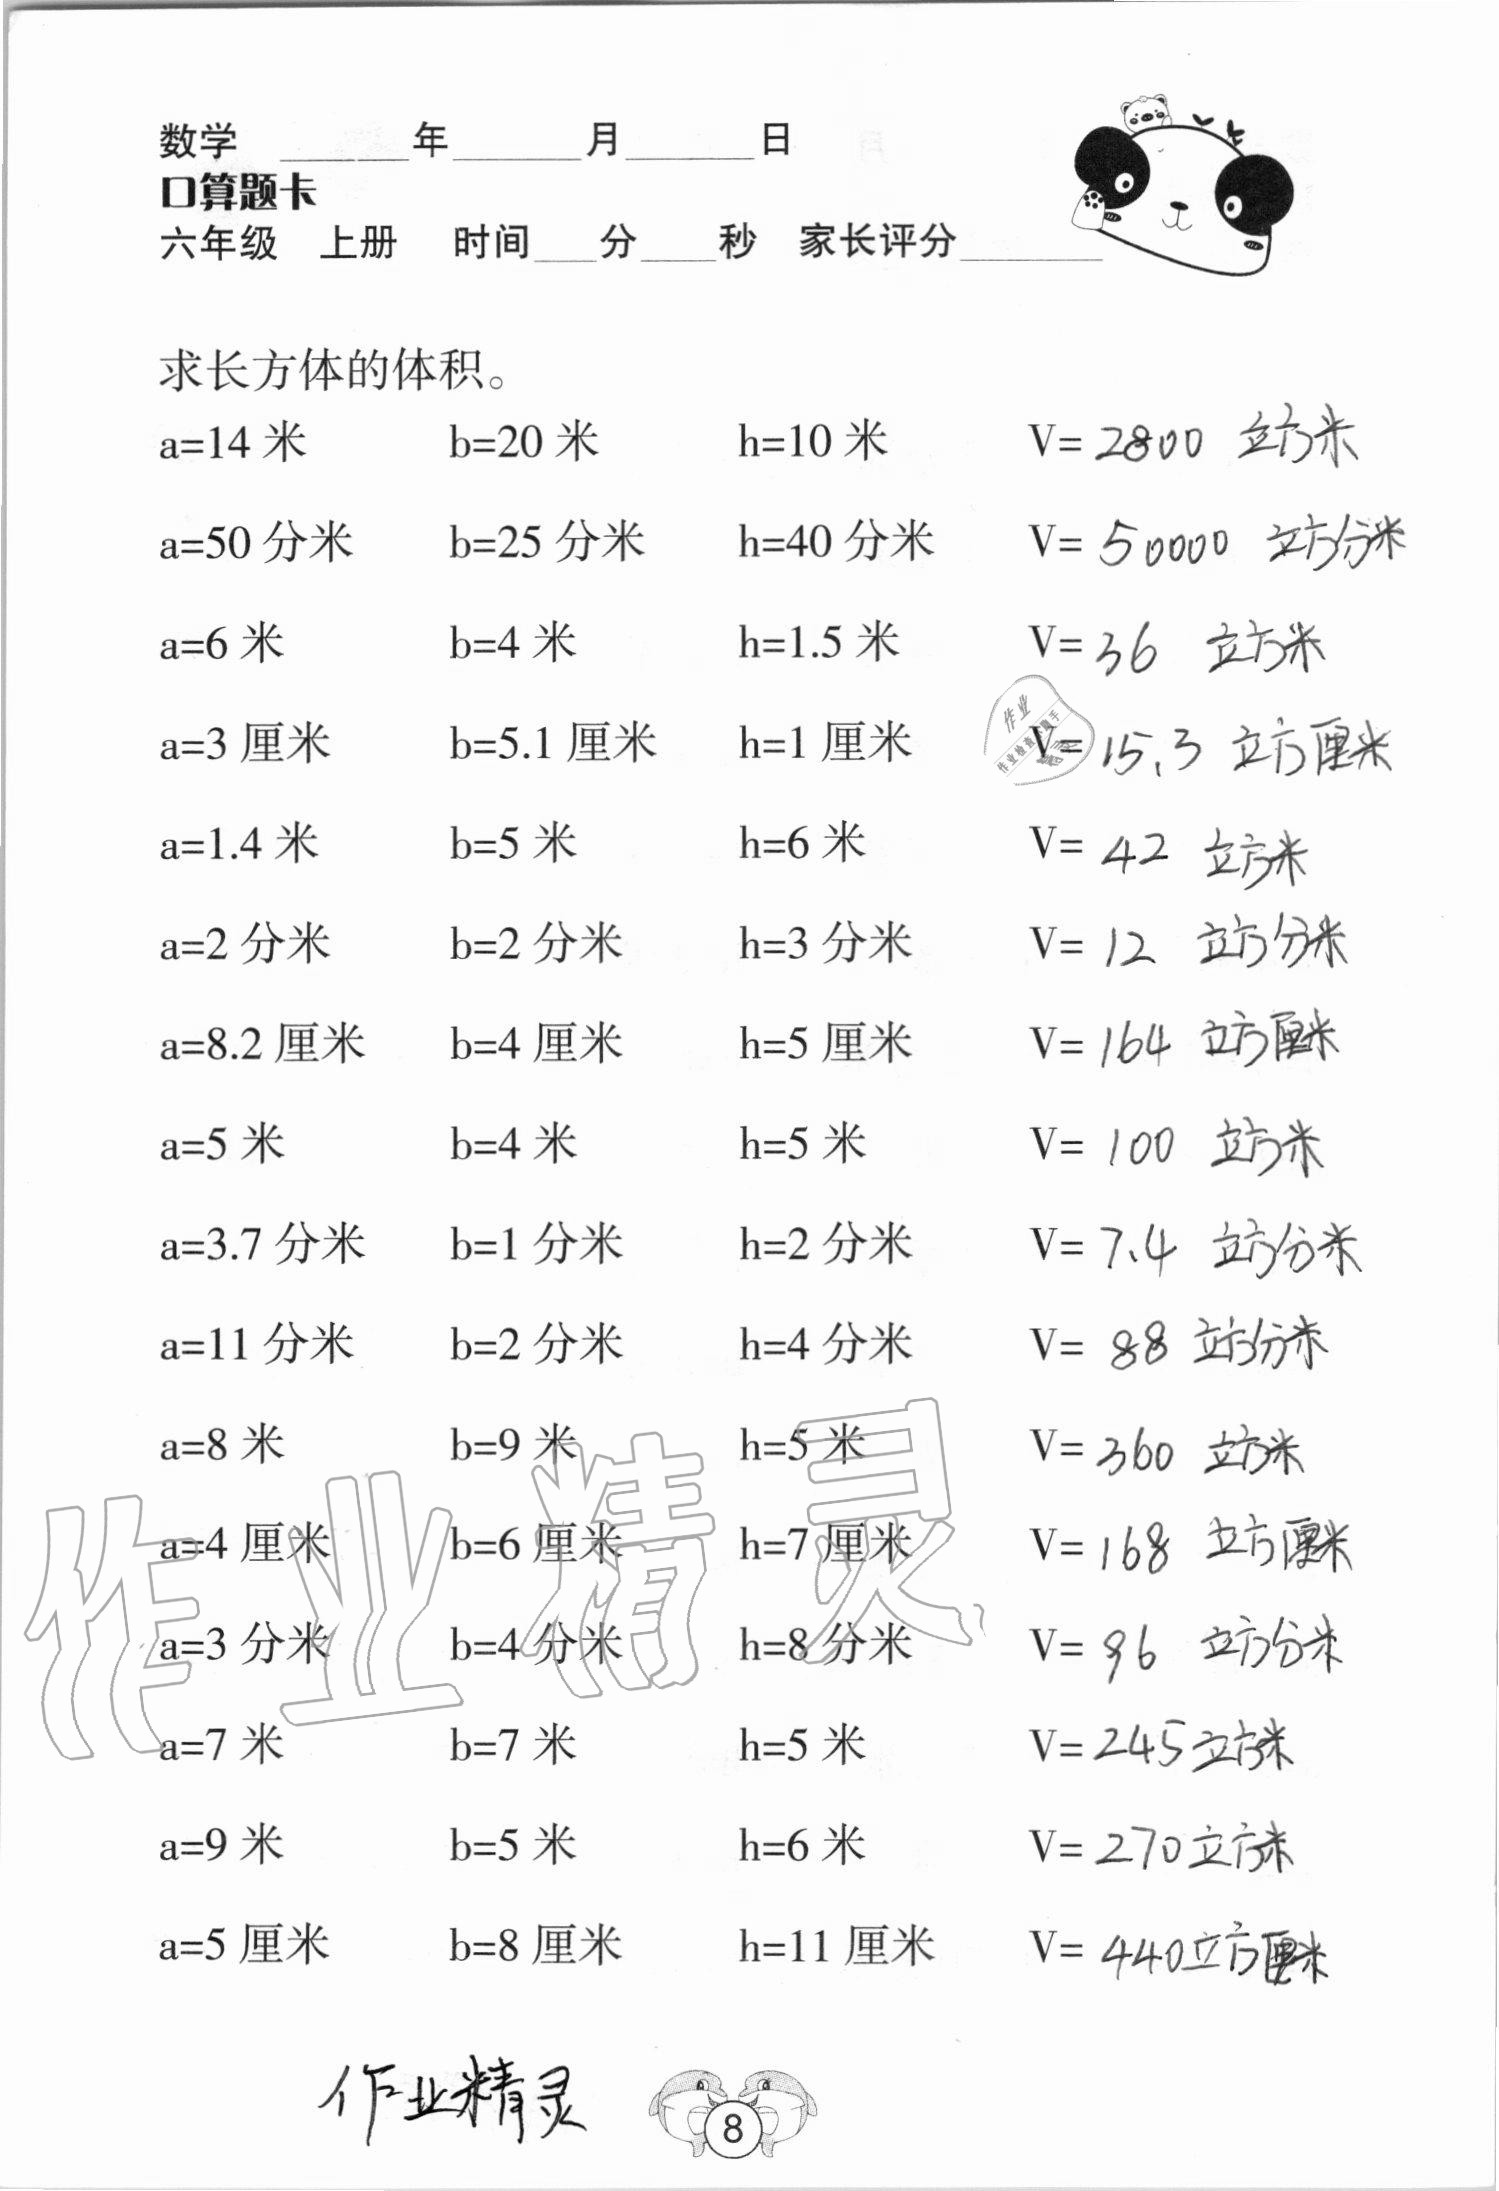 数学 ____年____月____日
口算题卡
六年级 上册 时间___分___秒 家长评分______
求长方体的体积。
a=14 米 b=20 米 h=10 米 V= 2800 立方米
a=50 分米 b=25 分米 h=40 分米 V= 50000 立方分米
a=6 米 b=4 米 h=1.5 米 V= 36 立方米
作业
作业检查小助手
a=3 厘米 b=5.1 厘米 h=1 厘米 V= 15.3 立方厘米
a=1.4 米 b=5 米 h=6 米 V= 42 立方米
a=2 分米 b=2 分米 h=3 分米 V= 12 立方分米
a=8.2 厘米 b=4 厘米 h=5 厘米 V= 164 立方厘米
a=5 米 b=4 米 h=5 米 V= 100 立方米
a=3.7 分米 b=1 分米 h=2 分米 V= 7.4 立方分米
a=11 分米 b=2 分米 h=4 分米 V= 88 立方分米
a=8 米 b=9 米 h=5 米 V= 360 立方米
a=4 厘米 b=6 厘米 h=7 厘米 V= 168 立方厘米
作业精灵
a=3 分米 b=4 分米 h=8 分米 V= 96 立方分米
a=7 米 b=7 米 h=5 米 V= 245 立方米
a=9 米 b=5 米 h=6 米 V= 270 立方米
a=5 厘米 b=8 厘米 h=11 厘米 V= 440 立方厘米
作业精灵
8